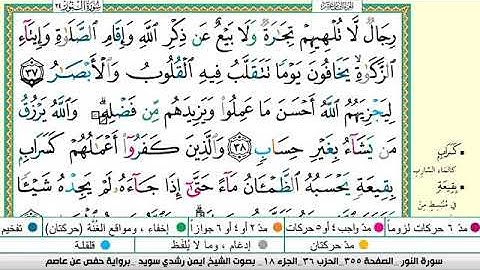 سُورَةُ النُّورِ
رِجَالٌ لَّا تُلْهِيهِمْ تِجَٰرَةٌ وَلَا بَيْعٌ عَن ذِكْرِ ٱللَّهِ وَإِقَامِ ٱلصَّلَوٰةِ وَإِيتَآءِ
ٱلزَّكَوٰةِ ۙ يَخَافُونَ يَوْمًا تَتَقَلَّبُ فِيهِ ٱلْقُلُوبُ وَٱلْأَبْصَٰرُ ٣٧
لِيَجْزِيَهُمُ ٱللَّهُ أَحْسَنَ مَا عَمِلُوا۟ وَيَزِيدَهُم مِّن فَضْلِهِۦ ۗ وَٱللَّهُ يَرْزُقُ
مَن يَشَآءُ بِغَيْرِ حِسَابٍ ٣٨ وَٱلَّذِينَ كَفَرُوٓا۟ أَعْمَٰلُهُمْ كَسَرَابٍۭ
بِقِيعَةٍ يَحْسَبُهُ ٱلظَّمْـَٔانُ مَآءً حَتَّىٰٓ إِذَا جَآءَهُۥ لَمْ يَجِدْهُ شَيْـًٔا
كَسَرَابٍ
كالماء السّارب
بِقِيعَةٍ
في مُنبسِطٍ من
مدّ ٦ حركات لزوماً مدّ واجب ٤ أو ٥ حركات مدّ ٢ أو ٤ أو ٦ جوازاً إخفاء، ومواقع الغُنَّة (حركتان) تفخيم
مدّ حركتان إدغام، وما لا يُلفَظ قلقلة
سورة النور . الصفحة ٣٥٥ . الحزب ٣٦ . الجزء ١٨ . بصوت الشيخ ايمن رشدي سويد . برواية حفص عن عاصم